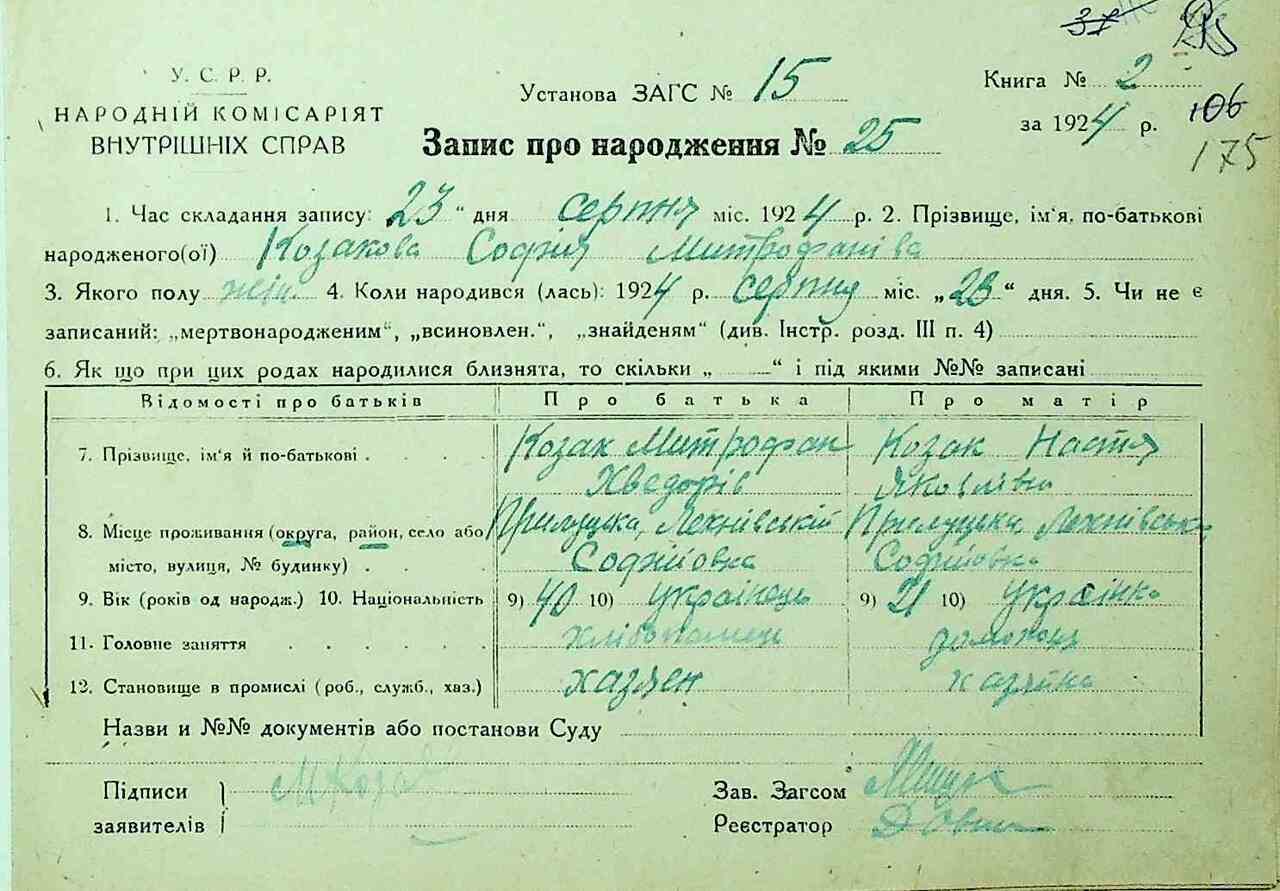 37
У. С. Р. Р.
НАРОДНІЙ КОМІСАРІЯТ
ВНУТРІШНІХ СПРАВ
Установа ЗАГС № 15
Книга № 2
за 1924 р.
106
175
Запис про народження № 25
1. Час складання запису: 23 " дня серпня міс. 1924 р. 2. Прізвище, ім'я, по-батькові
народженого(ої) Козакова Софія Митрофанівa
3. Якого полу жін. 4. Коли народився (лась): 1924 р. серпня міс. „23“ дня. 5. Чи не є
записаний: „мертвонародженим“, „всиновлен.“, „знайденям“ (див. Інстр. розд. III п. 4)
6. Як що при цих родах народилися близнята, то скільки „ “ і під якими №№ записані
Відомості про батьків Про батька Про матір
7. Прізвище, ім'я й по-батькові . . . Козак Митрофан Козак Настя
Хведорів Яковлівна
8. Місце проживання (округа, район, село або Прилуцька, Лехнівській Прилуцька, Лехнівська
місто, вулиця, № будинку) . . . Софіївка Софіївка
9. Вік (років од народж.) 10. Національність 9) 40 10) українець 9) 21 10) українка
11. Головне заняття . . . . . хлібопашец домохоз
12. Становище в промислі (роб., служб., хаз.) хазяен хазяйка
Назви и №№ документів або постанови Суду
Підписи М Козак Зав. Загсом
заявителів Реєстратор